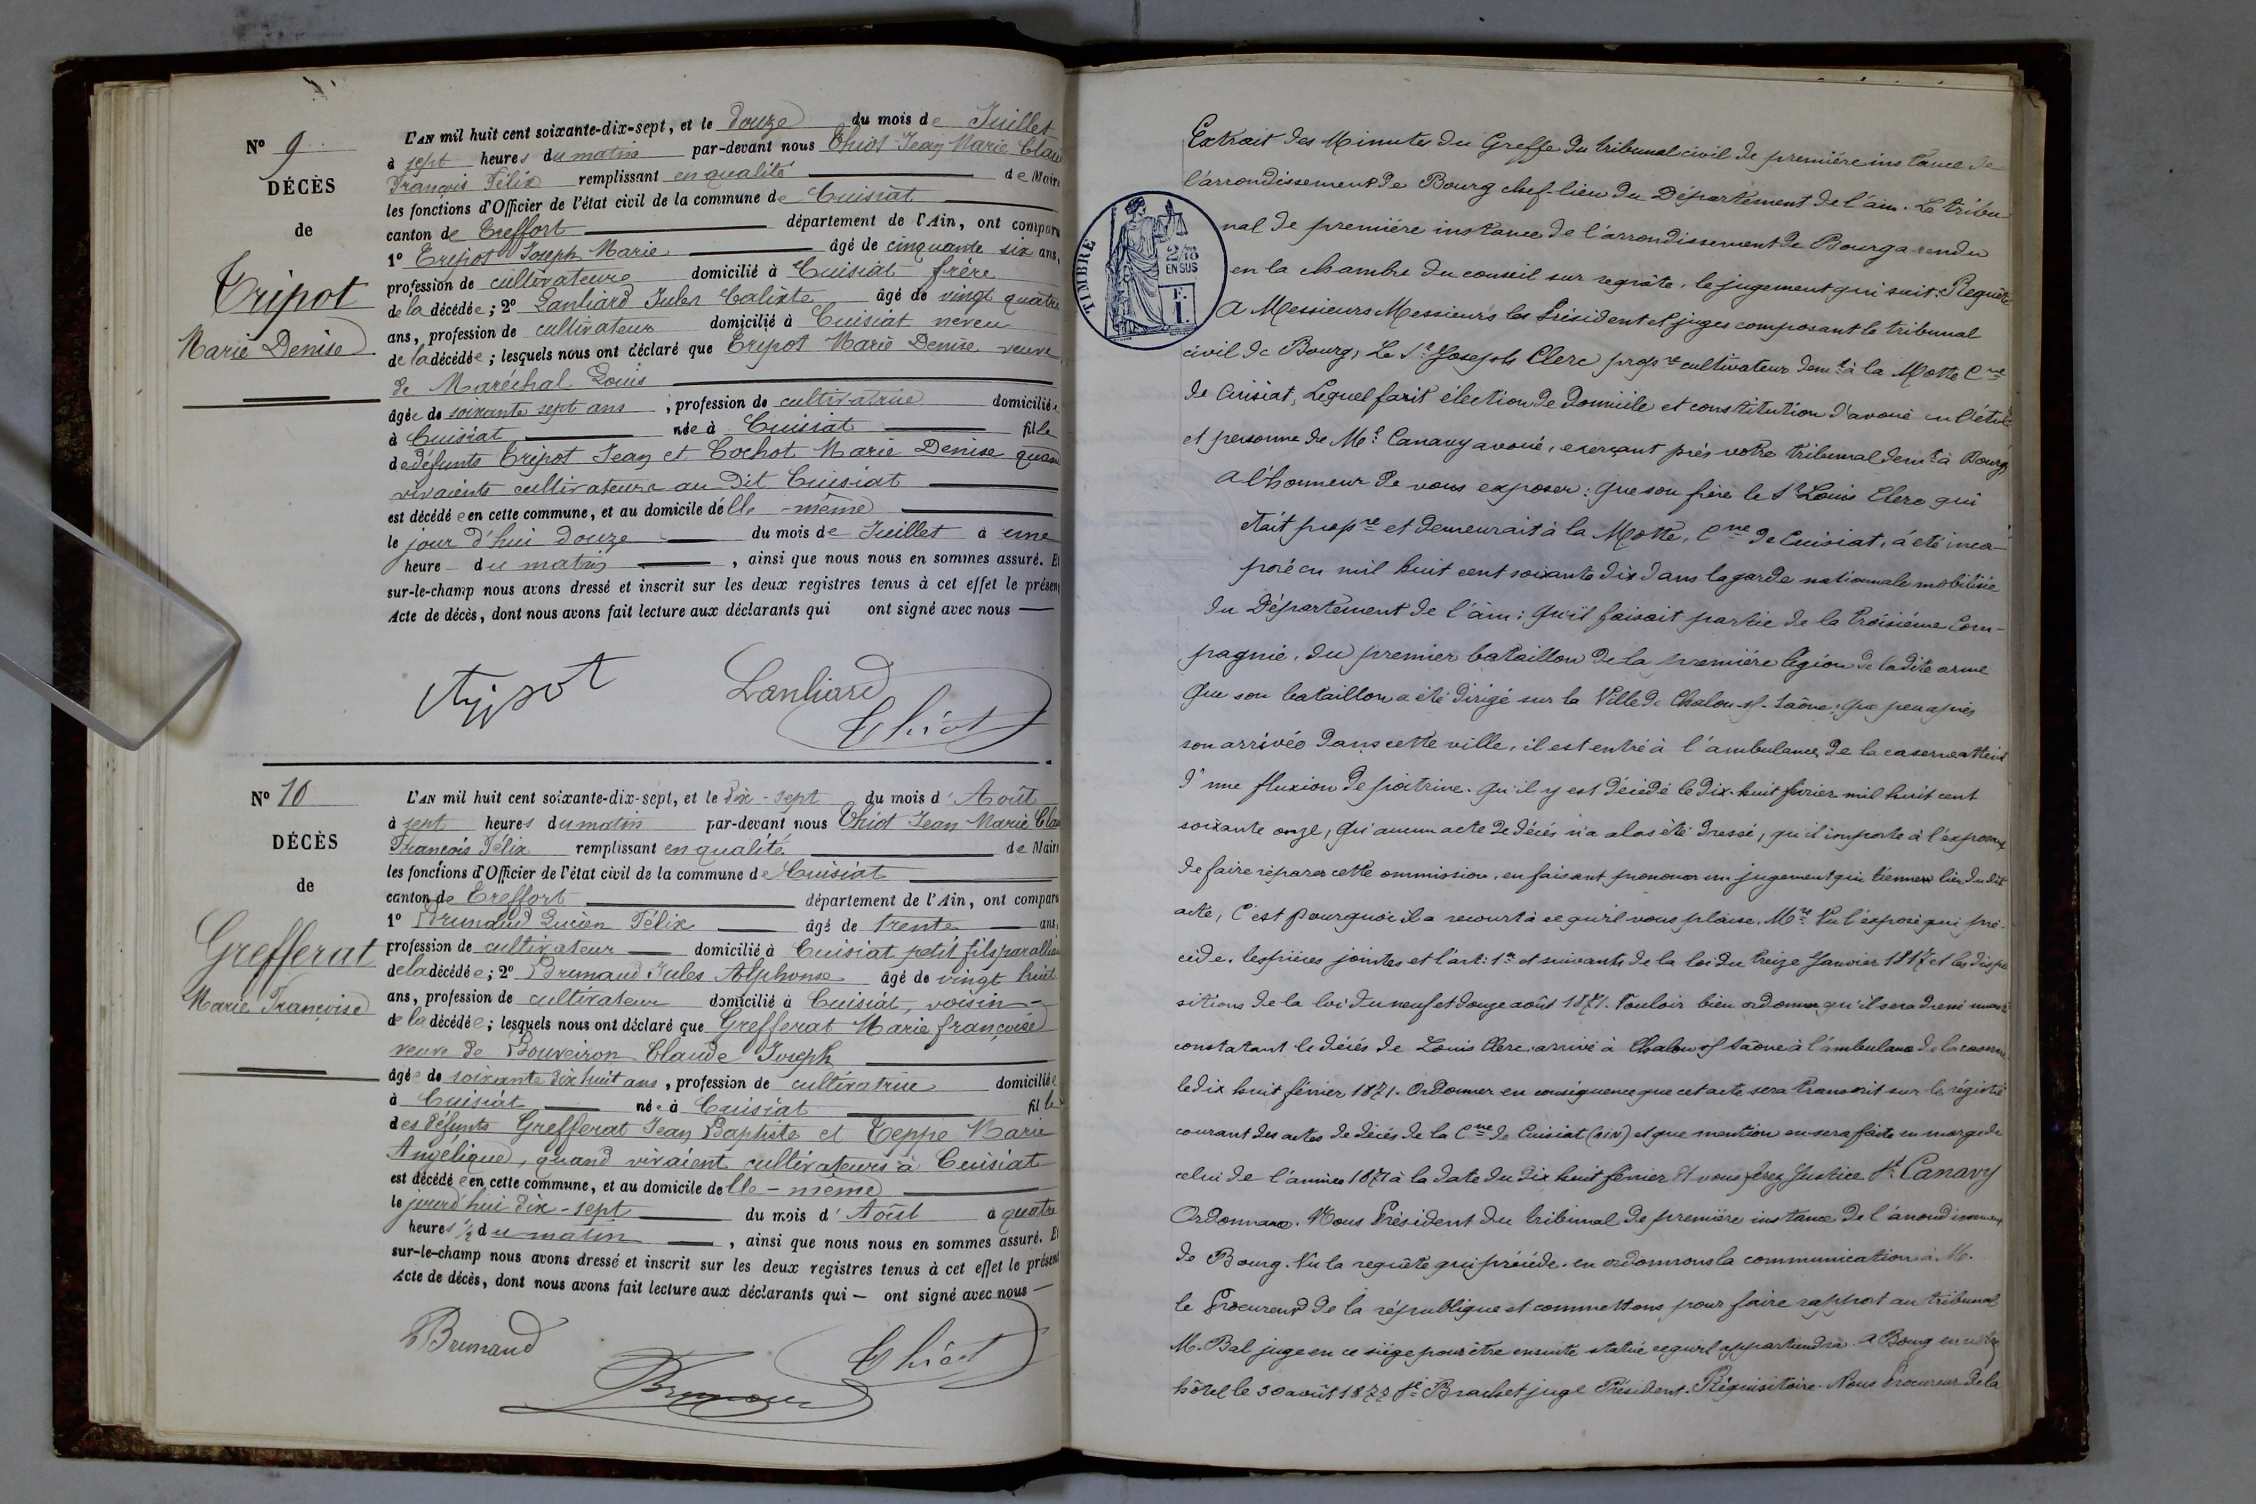 N° 9
DÉCÈS
de
Tripot
Marie Denise
L'AN mil huit cent soixante-dix-sept, et le douze du mois de Juillet
à sept heures du matin par-devant nous Thiot Jean Marie Clau
François Félix remplissant en qualité de Maire
les fonctions d'Officier de l'état civil de la commune de Cuisiat
canton de Treffort département de l'Ain, ont comparu
1° Tripot Joseph Marie âgé de cinquante six ans,
profession de cultivateur domicilié à Cuisiat frère
de la décédée; 2° Lanliard Jules Calixte âgé de vingt quatre
ans, profession de cultivateur domicilié à Cuisiat neveu
de la décédée; lesquels nous ont déclaré que Tripot Marie Denise veuve
de Maréchal Louis
âgée de soixante sept ans, profession de cultivatrice domiciliée
à Cuisiat née à Cuisiat fille
de défunts Tripot Jean et Cochot Marie Denise quand
vivaients cultivateurs au dit Cuisiat
est décédée en cette commune, et au domicile d'elle-même
le jour d'hui douze du mois de Juillet à une
heure du matin, ainsi que nous nous en sommes assuré. Et
sur-le-champ nous avons dressé et inscrit sur les deux registres tenus à cet effet le présent
Acte de décès, dont nous avons fait lecture aux déclarants qui ont signé avec nous
Tripot Lanliard
Thiot
N° 10
DÉCÈS
de
Grefferat
Marie Françoise
L'AN mil huit cent soixante-dix-sept, et le dix-sept du mois d'Août
à sept heures du matin par-devant nous Thiot Jean Marie Clau
François Félix remplissant en qualité de Maire
les fonctions d'Officier de l'état civil de la commune de Cuisiat
canton de Treffort département de l'Ain, ont comparu
1° Brunaud Lucien Félix âgé de trente ans,
profession de cultivateur domicilié à Cuisiat petit fils par alliance
de la décédée; 2° Brunaud Jules Alphonse âgé de vingt huit
ans, profession de cultivateur domicilié à Cuisiat, voisin
de la décédée; lesquels nous ont déclaré que Grefferat Marie françoise
veuve de Bouveiron Claude Joseph
âgée de soixante dix huit ans, profession de cultivatrice domiciliée
à Cuisiat née à Cuisiat fille
des défunts Grefferat Jean Baptiste et Teppe Marie
Angélique, quand vivaient cultivateurs à Cuisiat
est décédée en cette commune, et au domicile d'elle-même
le jourd'hui dix-sept du mois d'Août à quatre
heures ½ du matin, ainsi que nous nous en sommes assuré. Et
sur-le-champ nous avons dressé et inscrit sur les deux registres tenus à cet effet le présent
Acte de décès, dont nous avons fait lecture aux déclarants qui — ont signé avec nous
Brunaud Thiot
Brunaud
TIMBRE
2/10
EN SUS
F.
1.
Extrait des Minutes du Greffe du tribunal civil de première instance de
l'arrondissement de Bourg chef-lieu du Département de l'ain. Le tribu-
nal de première instance de l'arrondissement de Bourg a rendu
en la chambre du conseil sur requête, le jugement qui suit: Requête
A Messieurs Messieurs les Président et juges composant le tribunal
civil de Bourg, Le Sr Joseph Clerc propre cultivateur demt à la Motte Cne
de Cuisiat, Lequel fait élection de Domicile et constitution d'avoué en l'étude
et personne de Me Canavy avoué, exerçant près votre tribunal demt à Bourg
A l'honneur de vous exposer: Que son frère le Sr Louis Clerc qui
était propre et demeurait à la Motte, Cne de Cuisiat, a été incor-
poré en mil huit cent soixante dix dans la garde nationale mobilisée
du Département de l'ain: Qu'il faisait partie de la troisième Com-
pagnie, du premier bataillon de la première légion de ladite arme
Que son bataillon a été dirigé sur la Ville de Chalon-s/-Saône; Que peu après
son arrivée dans cette ville, il est entré à l'ambulance de la caserne atteint
d'une fluxion de poitrine. Qu'il y est décédé le dix-huit février mil huit cent
soixante onze, Qu'aucun acte de décès n'a alors été dressé, qu'il importe à l'exposant
de faire réparer cette ommission, en faisant prononcer un jugement qui tienne lieu dudit
acte, C'est pourquoi il a recourt à ce qu'il vous plaise, Mrs Vu l'exposé qui pré-
cède, les pièces jointes et l'art: 1er et suivants de la loi du treize Janvier 1817 et les dispo
sitions de la loi du neuf et douze août 1871. Vouloir bien ordonner qu'il sera dressé un acte
constatant le décès de Louis Clerc, arrivé à Chalon s/ Saône à l'ambulance de la caserne
le dix huit février 1871. Ordonner en conséquence que cet acte sera transcrit sur le régistre
courant des actes de décès de la Cne de Cuisiat (AIN) et que mention en sera faite en marge de
celui de l'année 1871 à la date du dix huit février Et vous ferez Justice St Canavy
Ordonnance. Nous Président du tribunal de première instance de l'arrondissement
de Bourg. Vu la requête qui précède, en ordonnons la communication à M.
le Procureur de la république et commettons pour faire rapport au tribunal
M. Bal juge en ce siège pour être ensuite statué ce qu'il appartiendra. A Bourg en notre
hôtel le 30 août 187 Sé Brachet juge Président. Réquisitoire. Nous Procureur de la